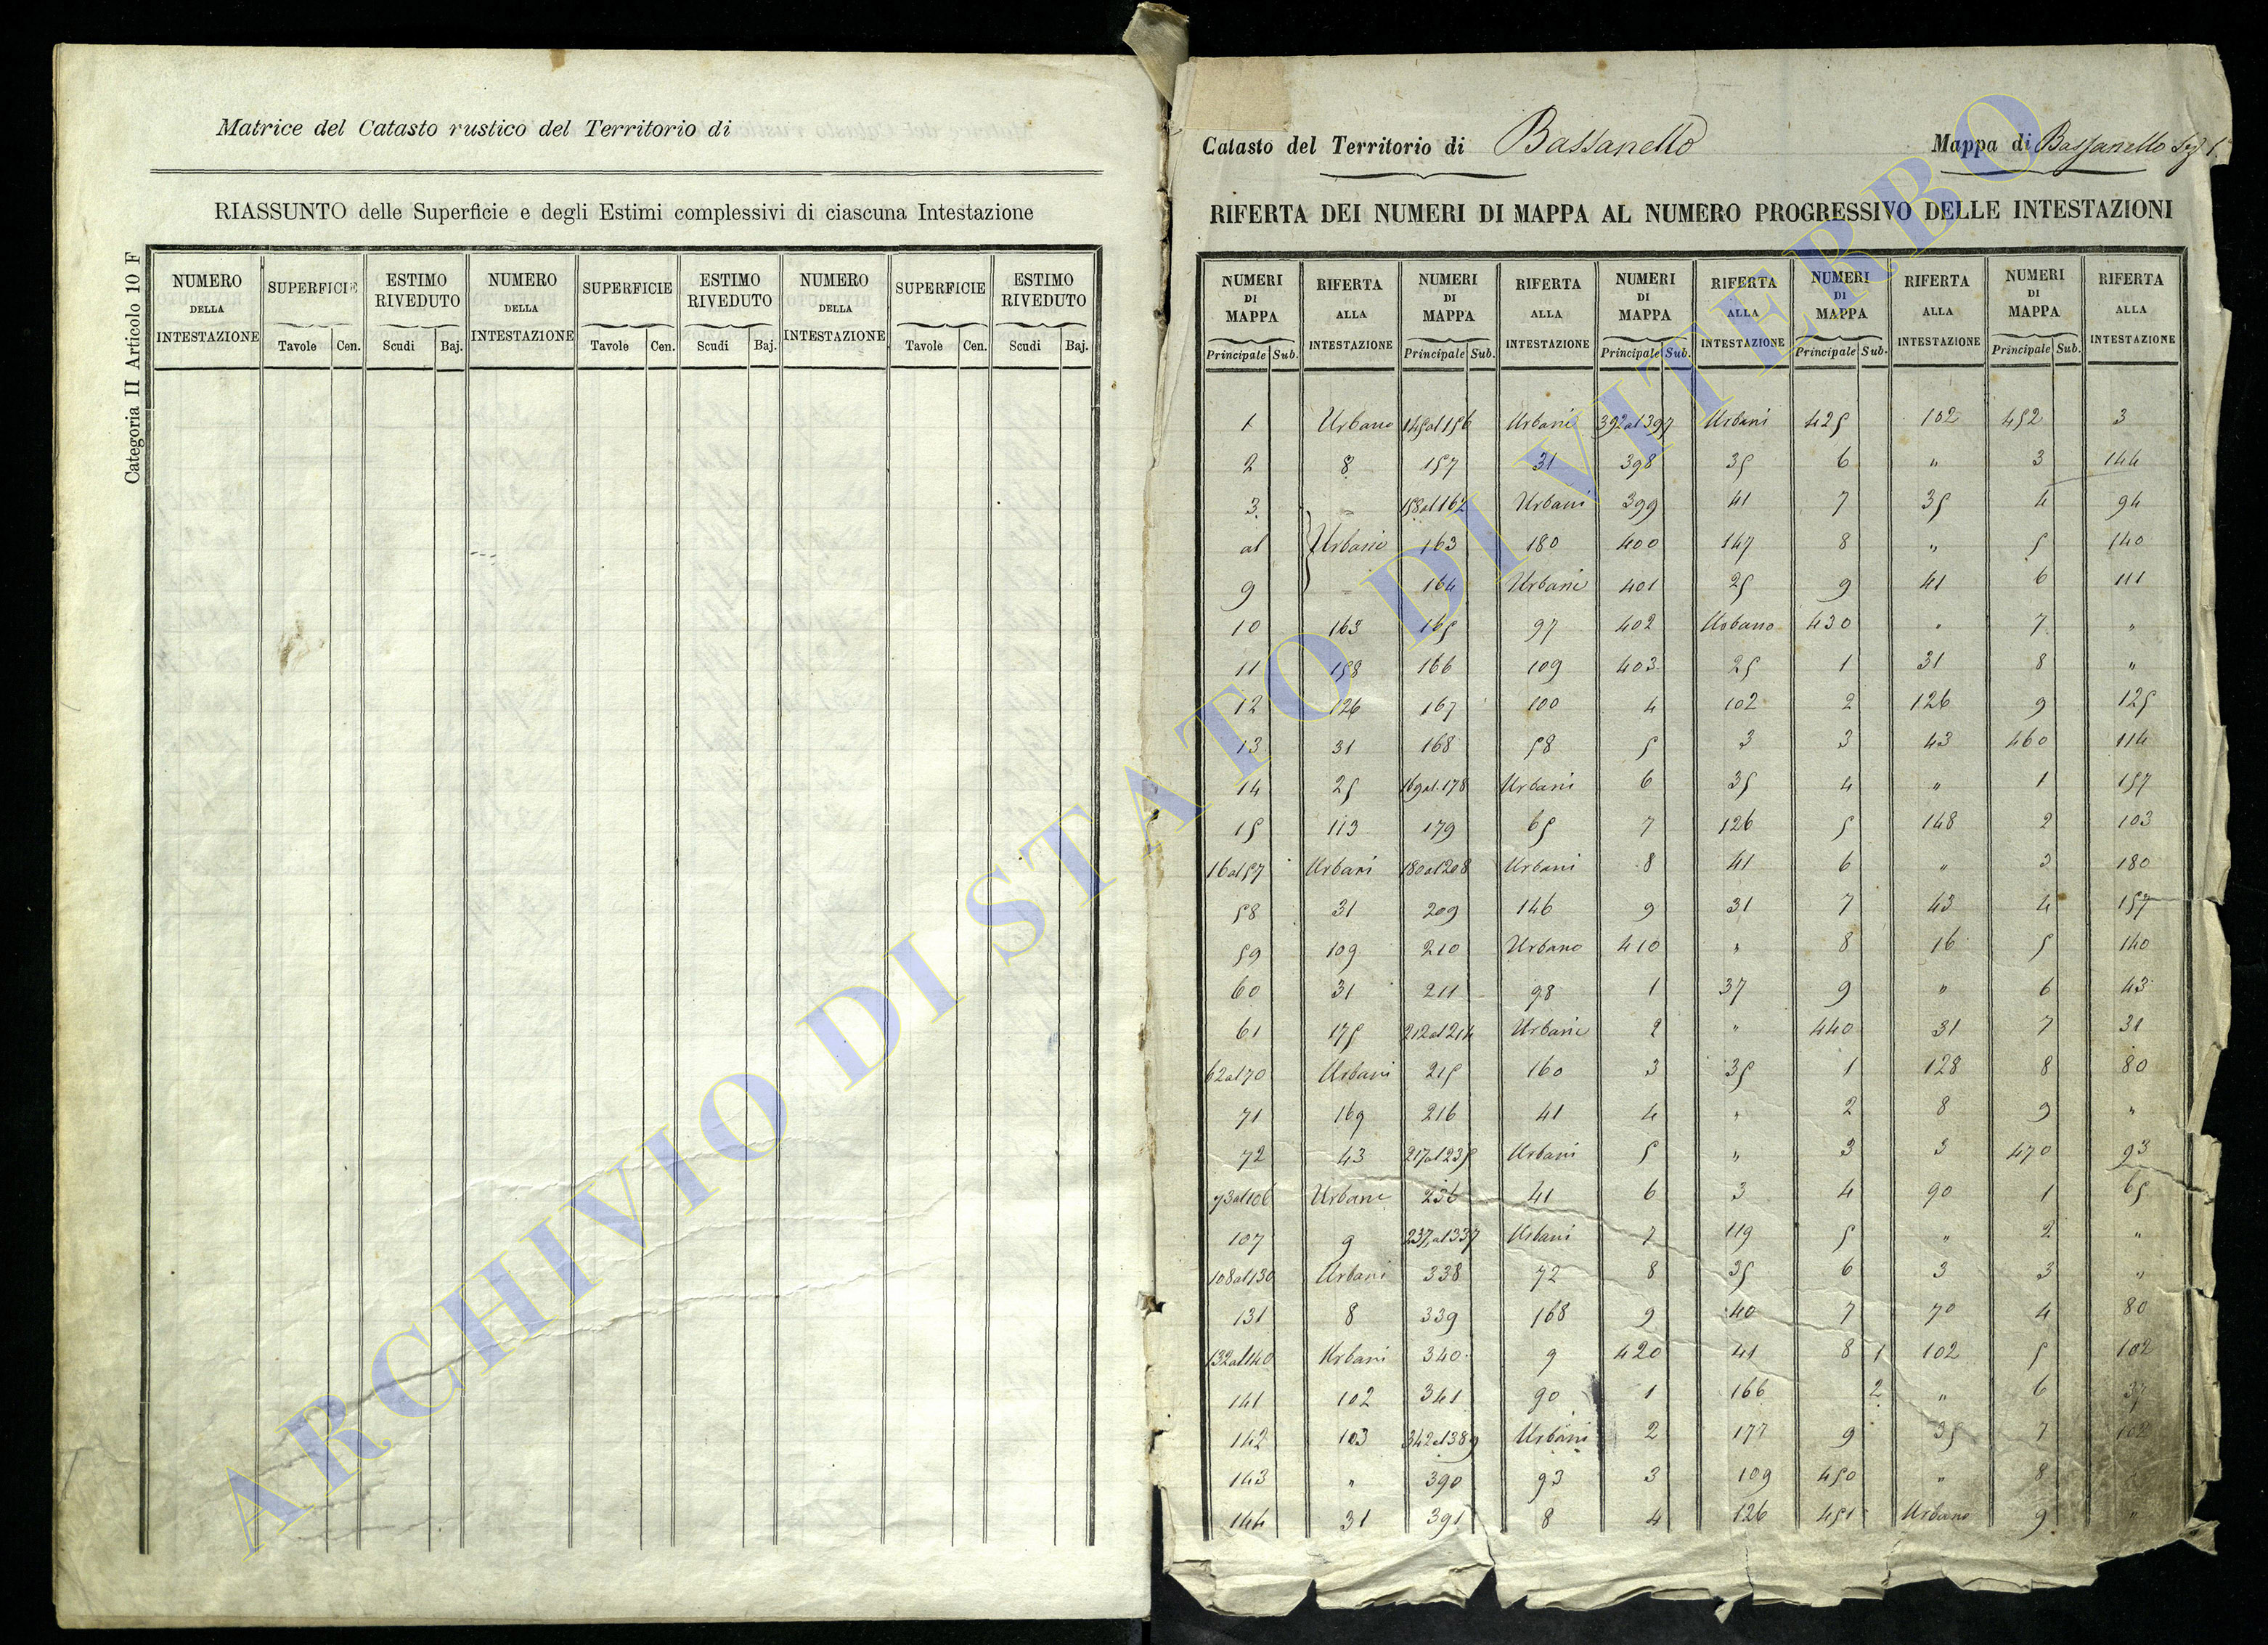 Matrice del Catasto rustico del Territorio di
RIASSUNTO delle Superficie e degli Estimi complessivi di ciascuna Intestazione
Categoria II Articolo 10 F
NUMERO DELLA INTESTAZIONE SUPERFICIE ESTIMO RIVEDUTO NUMERO DELLA INTESTAZIONE SUPERFICIE ESTIMO RIVEDUTO NUMERO DELLA INTESTAZIONE SUPERFICIE ESTIMO RIVEDUTO
Tavole Cen. Scudi Baj. Tavole Cen. Scudi Baj. Tavole Cen. Scudi Baj.
Catasto del Territorio di Bassanello Mappa di Bassanello
RIFERTA DEI NUMERI DI MAPPA AL NUMERO PROGRESSIVO DELLE INTESTAZIONI
NUMERI DI MAPPA RIFERTA ALLA INTESTAZIONE NUMERI DI MAPPA RIFERTA ALLA INTESTAZIONE NUMERI DI MAPPA RIFERTA ALLA INTESTAZIONE NUMERI DI MAPPA RIFERTA ALLA INTESTAZIONE NUMERI DI MAPPA RIFERTA ALLA INTESTAZIONE
Principale Sub. Principale Sub. Principale Sub. Principale Sub. Principale Sub.
1 Urbano 145al156 Urbani 392al397 Urbani 425 102 452 3
2 8 157 31 398 35 6 " 3 144
3 " 158al162 Urbani 399 41 7 35 4 94
al Urbani 163 180 400 147 8 " 5 140
9 " 164 Urbano 401 25 9 41 6 111
10 163 165 97 402 Urbano 430 " 7 "
11 158 166 109 403 25 1 31 8 "
12 126 167 100 4 102 2 126 9 125
13 31 168 58 5 3 3 43 460 114
14 25 169al178 Urbani 6 35 4 " 1 157
15 113 179 65 7 126 5 148 2 103
16al57 Urbani 180al208 Urbani 8 41 6 " 3 180
58 31 209 146 9 31 7 43 4 157
59 109 210 Urbano 410 " 8 16 5 140
60 31 211 98 1 37 9 " 6 43
61 175 212al214 Urbani 2 " 440 31 7 31
62al70 Urbani 215 160 3 35 1 128 8 80
71 169 216 41 4 " 2 8 9 "
72 43 217al235 Urbani 5 " 3 3 470 93
73al106 Urbani 236 41 6 3 4 90 1 65
107 9 237al337 Urbani 7 119 5 " 2 "
108al130 Urbani 338 72 8 35 6 3 3 "
131 8 339 168 9 40 7 70 4 80
132al140 Urbani 340 9 420 41 8 1 102 5 102
141 102 341 90 1 166 2 " 6 37
142 103 342al389 Urbani 2 177 9 35 7 102
143 " 390 93 3 109 450 " 8
144 31 391 8 4 126 451 Urbano 9 "
ARCHIVIO DI STATO DI VITERBO